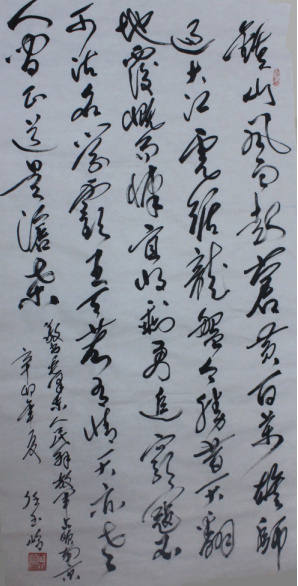 钟山风雨起苍黄百万雄师
过大江虎踞龙盘今胜昔天翻
地覆慨而慷宜将剩勇追穷寇不
可沽名学霸王天若有情天亦老
人间正道是沧桑
敬书毛泽东人民解放军占领南京
辛卯年夏